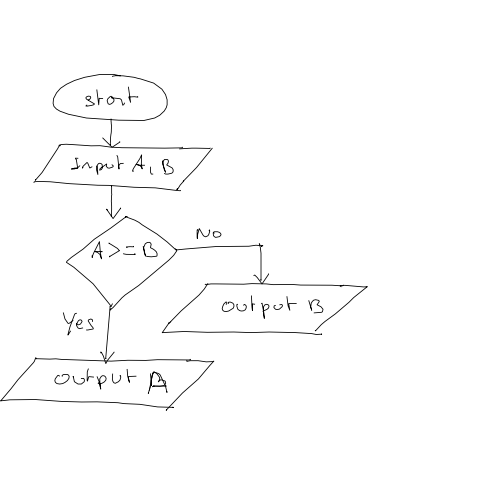 start
Input A, B
A>=B
No
Output B
Yes
Output A